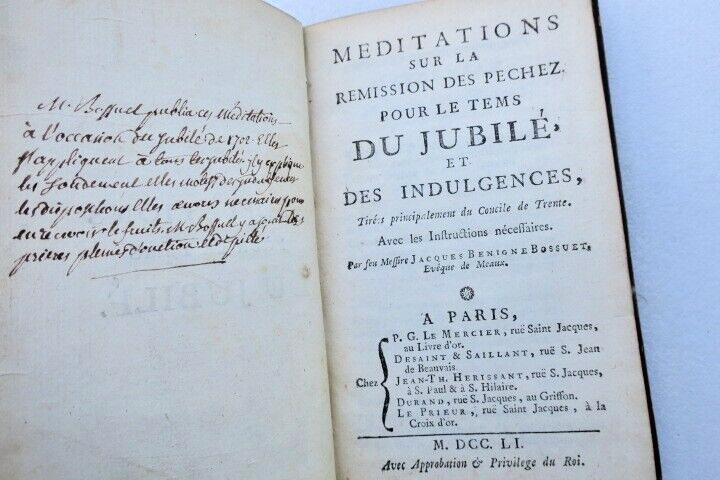 Mr. Bossuet publia ces Méditations
à l'occasion du Jubilé de 1702. Elles
s'appliquent à tous les jubilés. Il y explique
les fondement et les motifs des indulgences
les dispositions et les œuvres necessaires pour
en recevoir le fruits. Mr. Bossuet y a joint des
prieres pleines d'onction et de piété.
MEDITATIONS
SUR LA
REMISSION DES PECHEZ
POUR LE TEMS
DU JUBILÉ,
ET
DES INDULGENCES,
Tirées principalement du Concile de Trente.
Avec les Instructions nécessaires.
Par feu Messire JACQUES BENIGNE BOSSUET,
Evêque de Meaux.
A PARIS,
Chez
P. G. LE MERCIER, ruë Saint Jacques,
au Livre d'or.
DESAINT & SAILLANT, ruë S. Jean
de Beauvais.
JEAN-TH. HERISSANT, ruë S. Jacques,
à S. Paul & à S. Hilaire.
DURAND, ruë S. Jacques, au Griffon.
LE PRIEUR, ruë Saint Jacques, à la
Croix d'or.
M. DCC. LI.
Avec Approbation & Privilege du Roi.